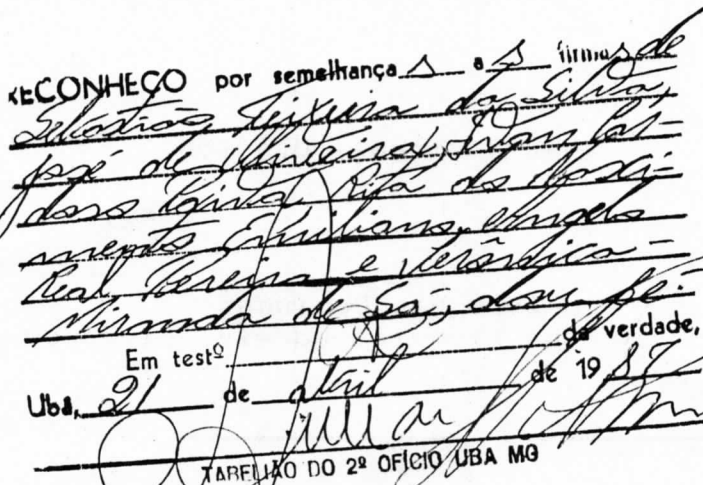 RECONHEÇO por semelhança s a s firmas de
Sebastião Teixeira da Silva,
José de Oliveira, Ivan
Rita do Nasci-
mento Emiliano, Angelo
Real Pereira e Verôndica
Miranda de Sá, dou fé.
Em testº da verdade,
Ubá, 21 de abril de 1987
TABELIÃO DO 2º OFÍCIO UBA MG